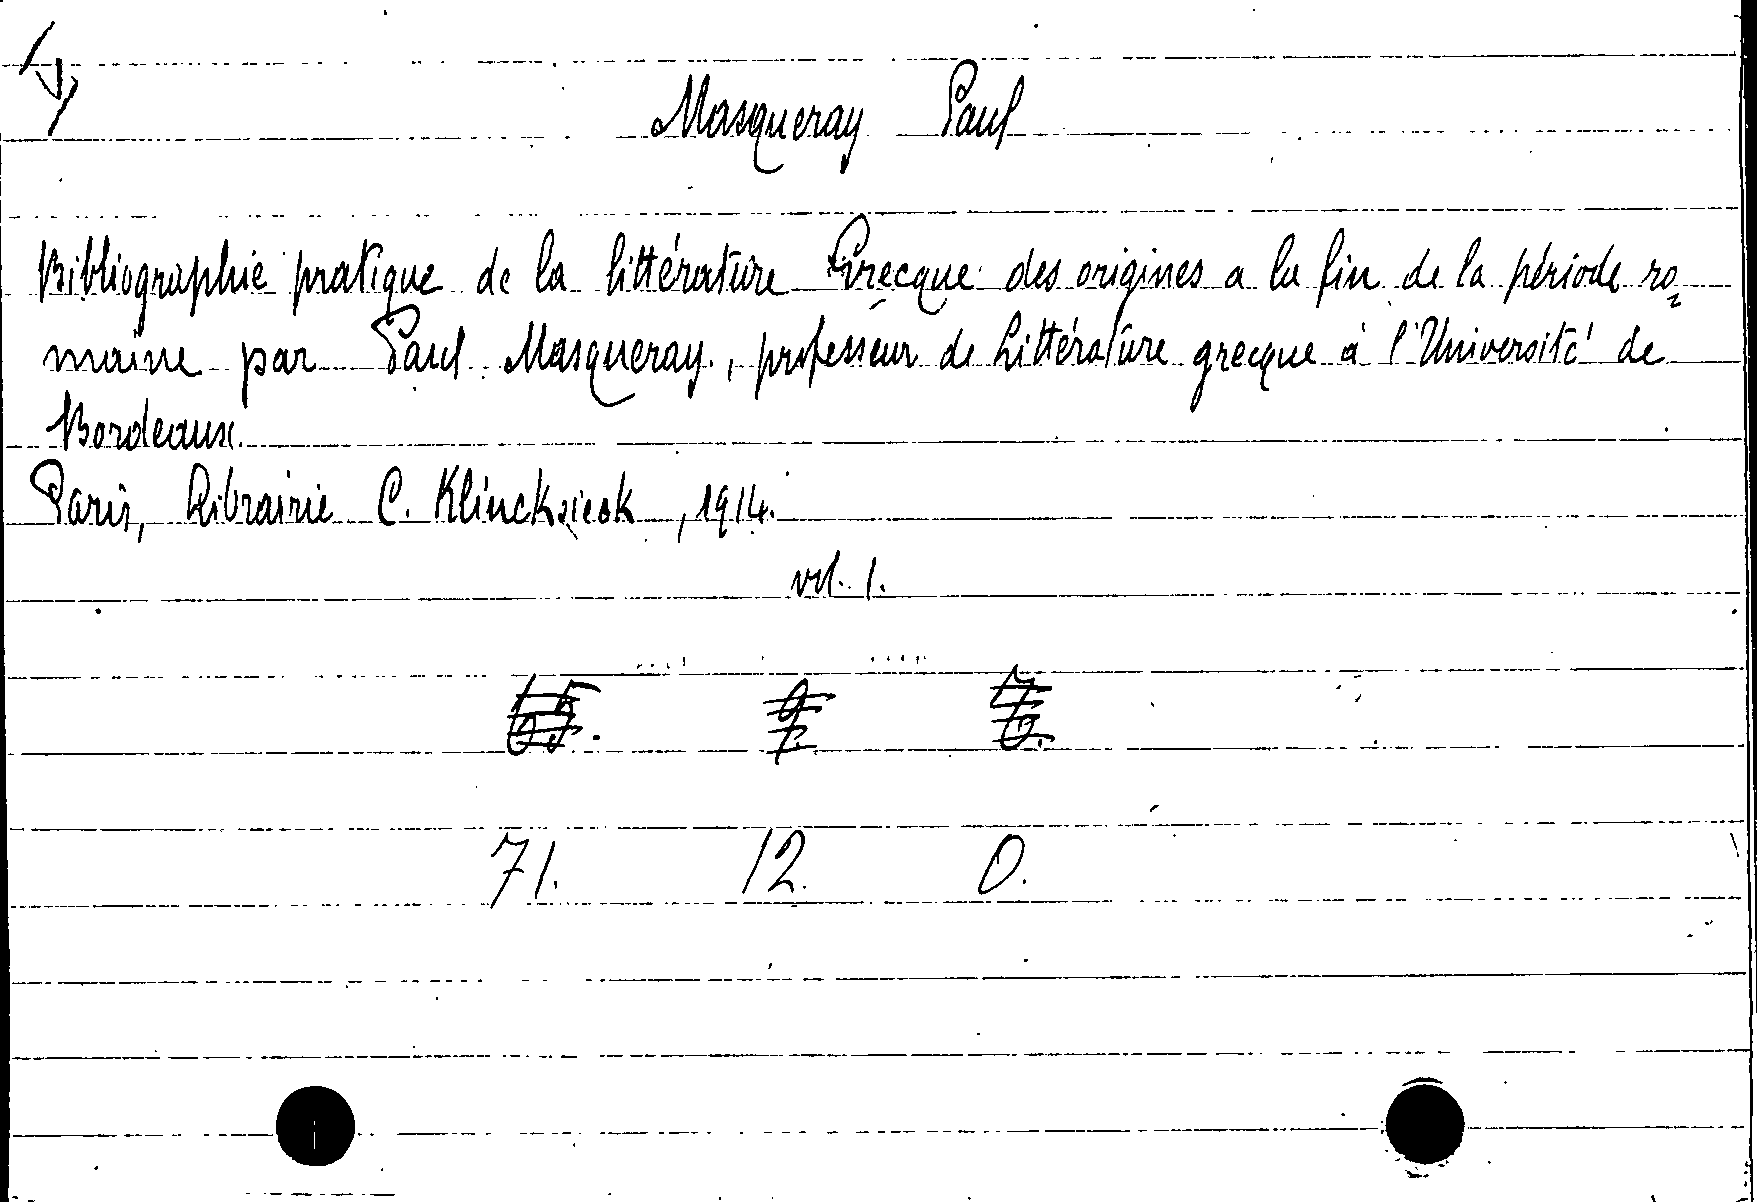 Masqueray Paul
Bibliographie pratique de la littérature Grecque des origines a la fin de la période ro=
maine par Paul Masqueray, professeur de Littérature grecque à l'Université de
Bordeaux.
Paris, Librairie C. Klincksieck, 1914.
vol. 1.
71. 12. 0.